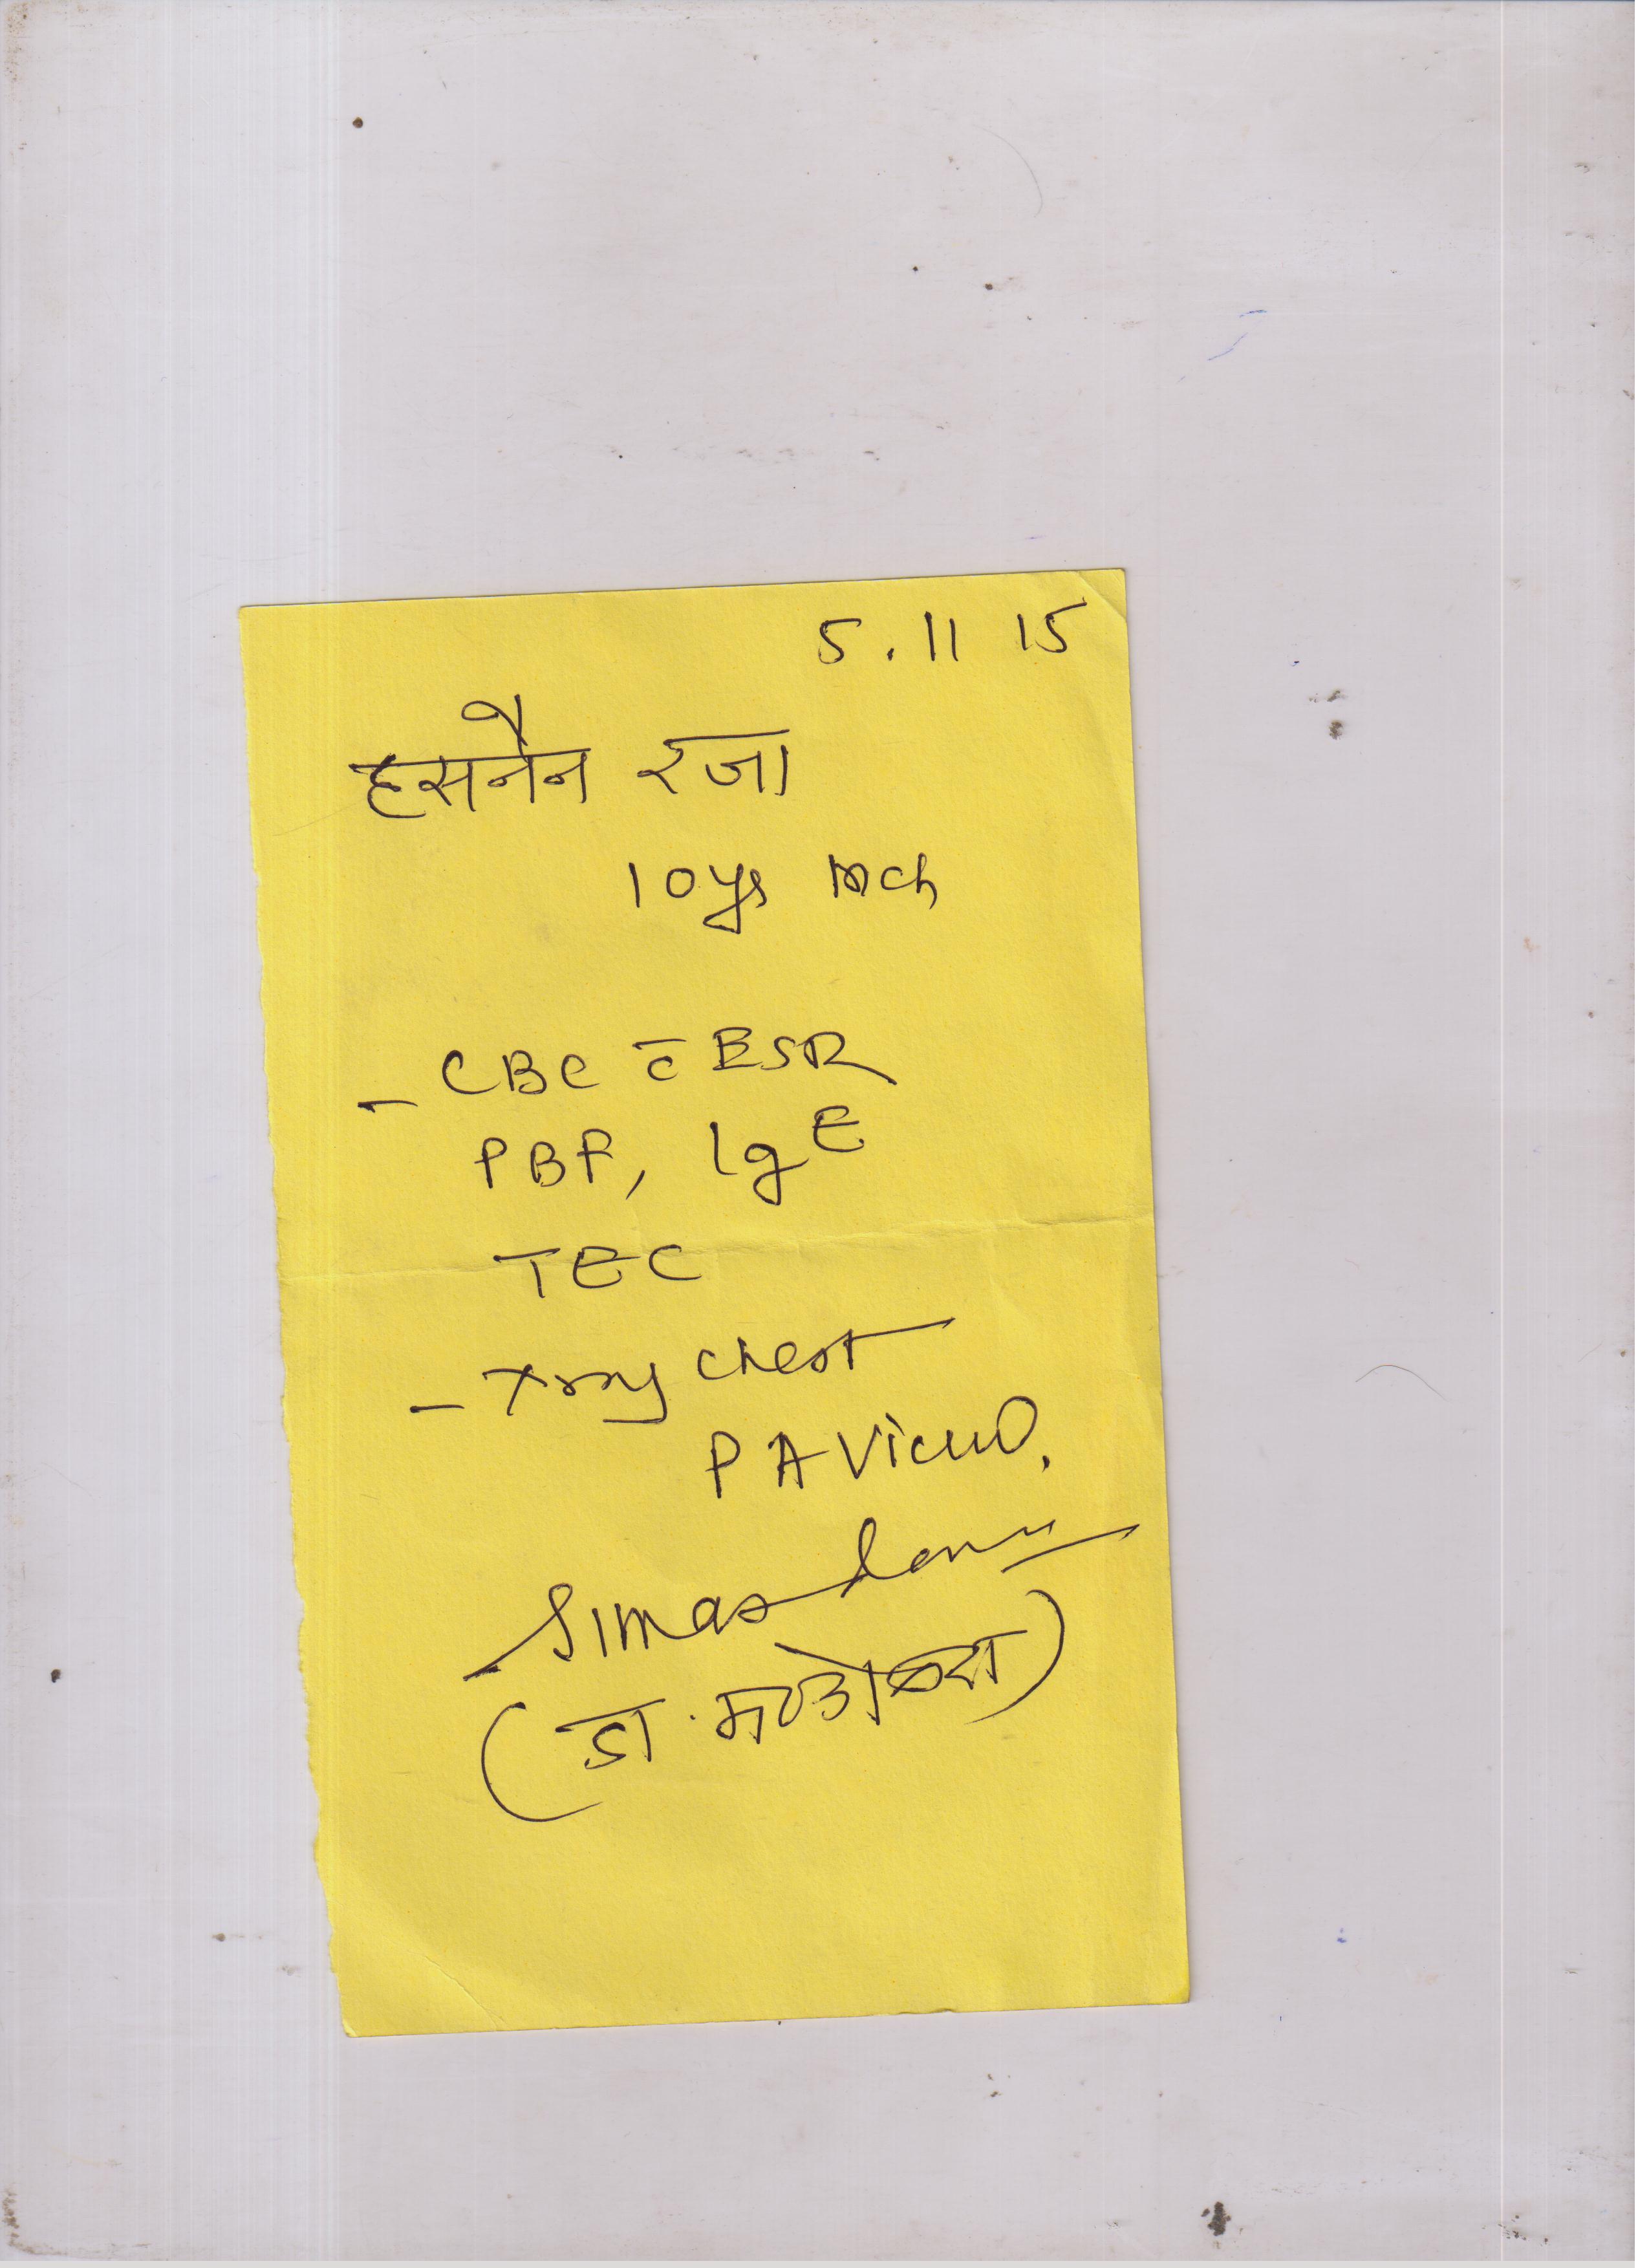 5.11 15
हसनैन रजा
10 yrs mch
- CBC c̄ ESR
PBF, IgE
TEC
- Xray chest
PA View.
(डा.